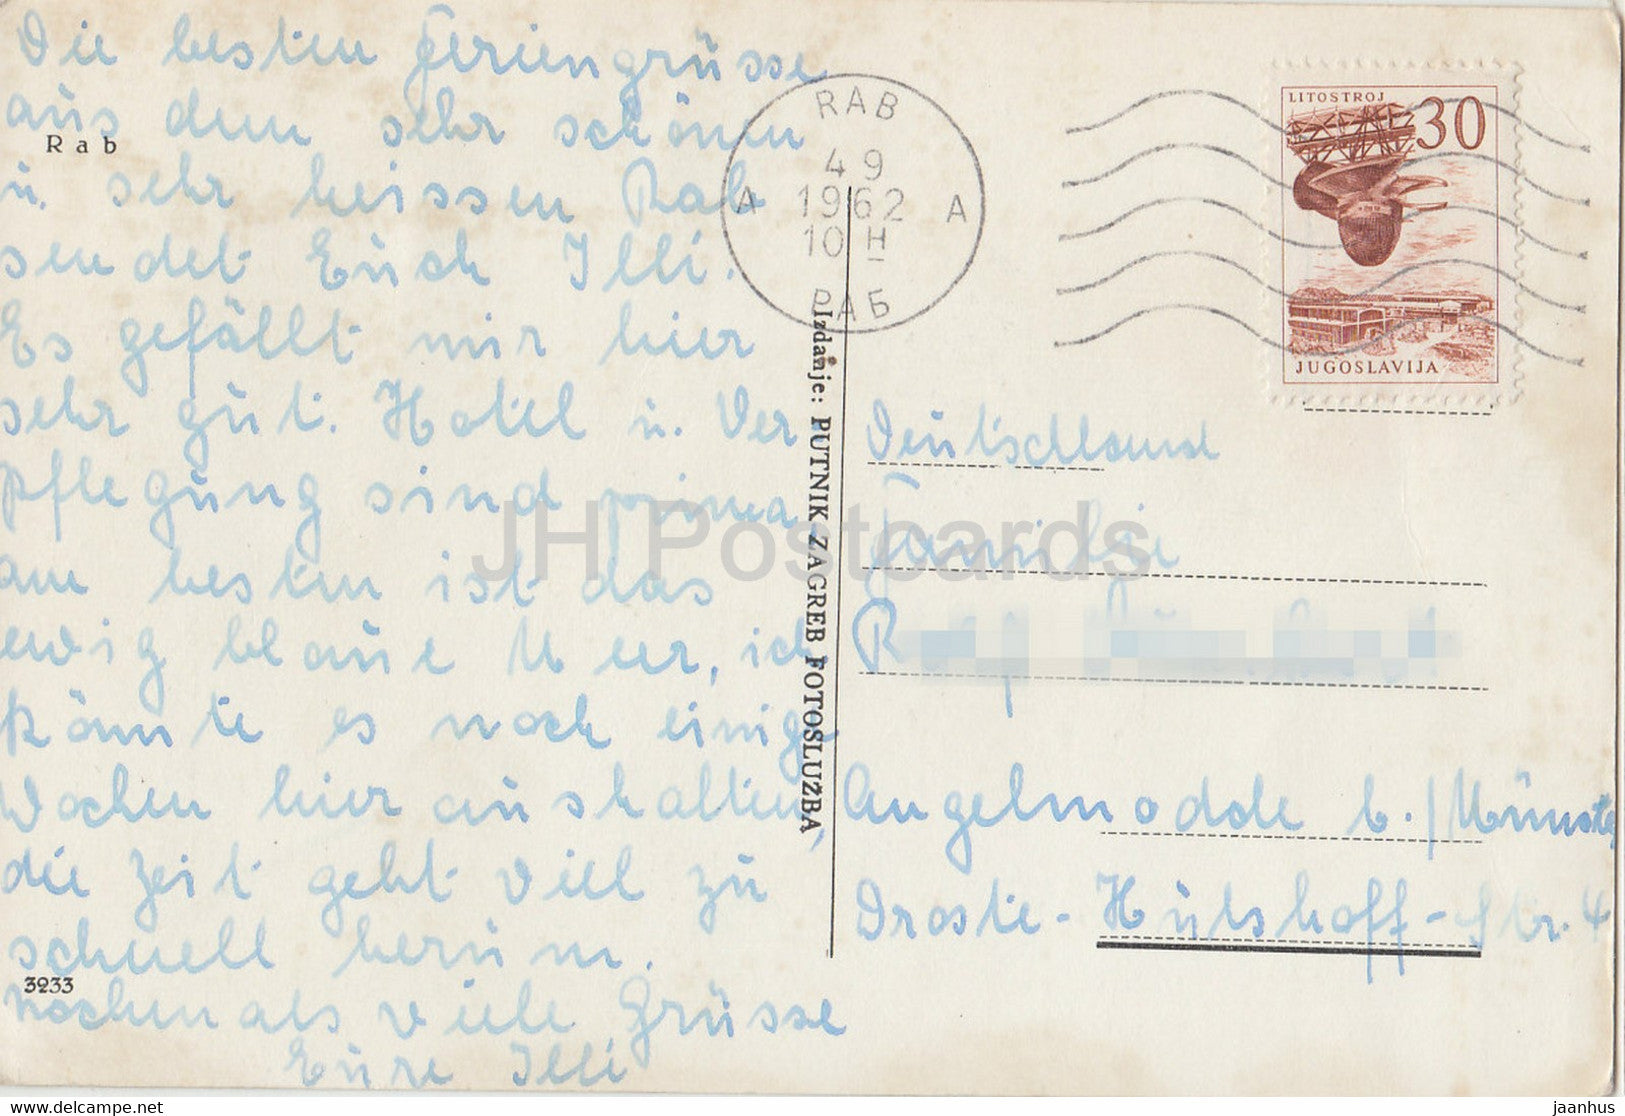 Die besten Feriengrüsse
aus dem sehr schönen
u. sehr heissen Rab
sendet Euch Illi.
Es gefällt mir hier
sehr gut. Hotel u. Ver-
pflegung sind prima,
am besten ist das
ewig blaue Meer, ich
könnte es noch einige
Wochen hier aushalten,
die Zeit geht viel zu
schnell herum.
Nochmals viele Grüsse
Eure Illi
Rab
3233
RAB
4 9
1962
10 H
A A
РАБ
Izdanje: PUTNIK ZAGREB FOTOSLUŽBA
LITOSTROJ
30
JUGOSLAVIJA
Deutschland
Familie
Angelmodde b./Münster
Droste-Hülshoff-Str. 4
JH Postcards
hosted by picclickimg.com/delcampe.net
jaanhus